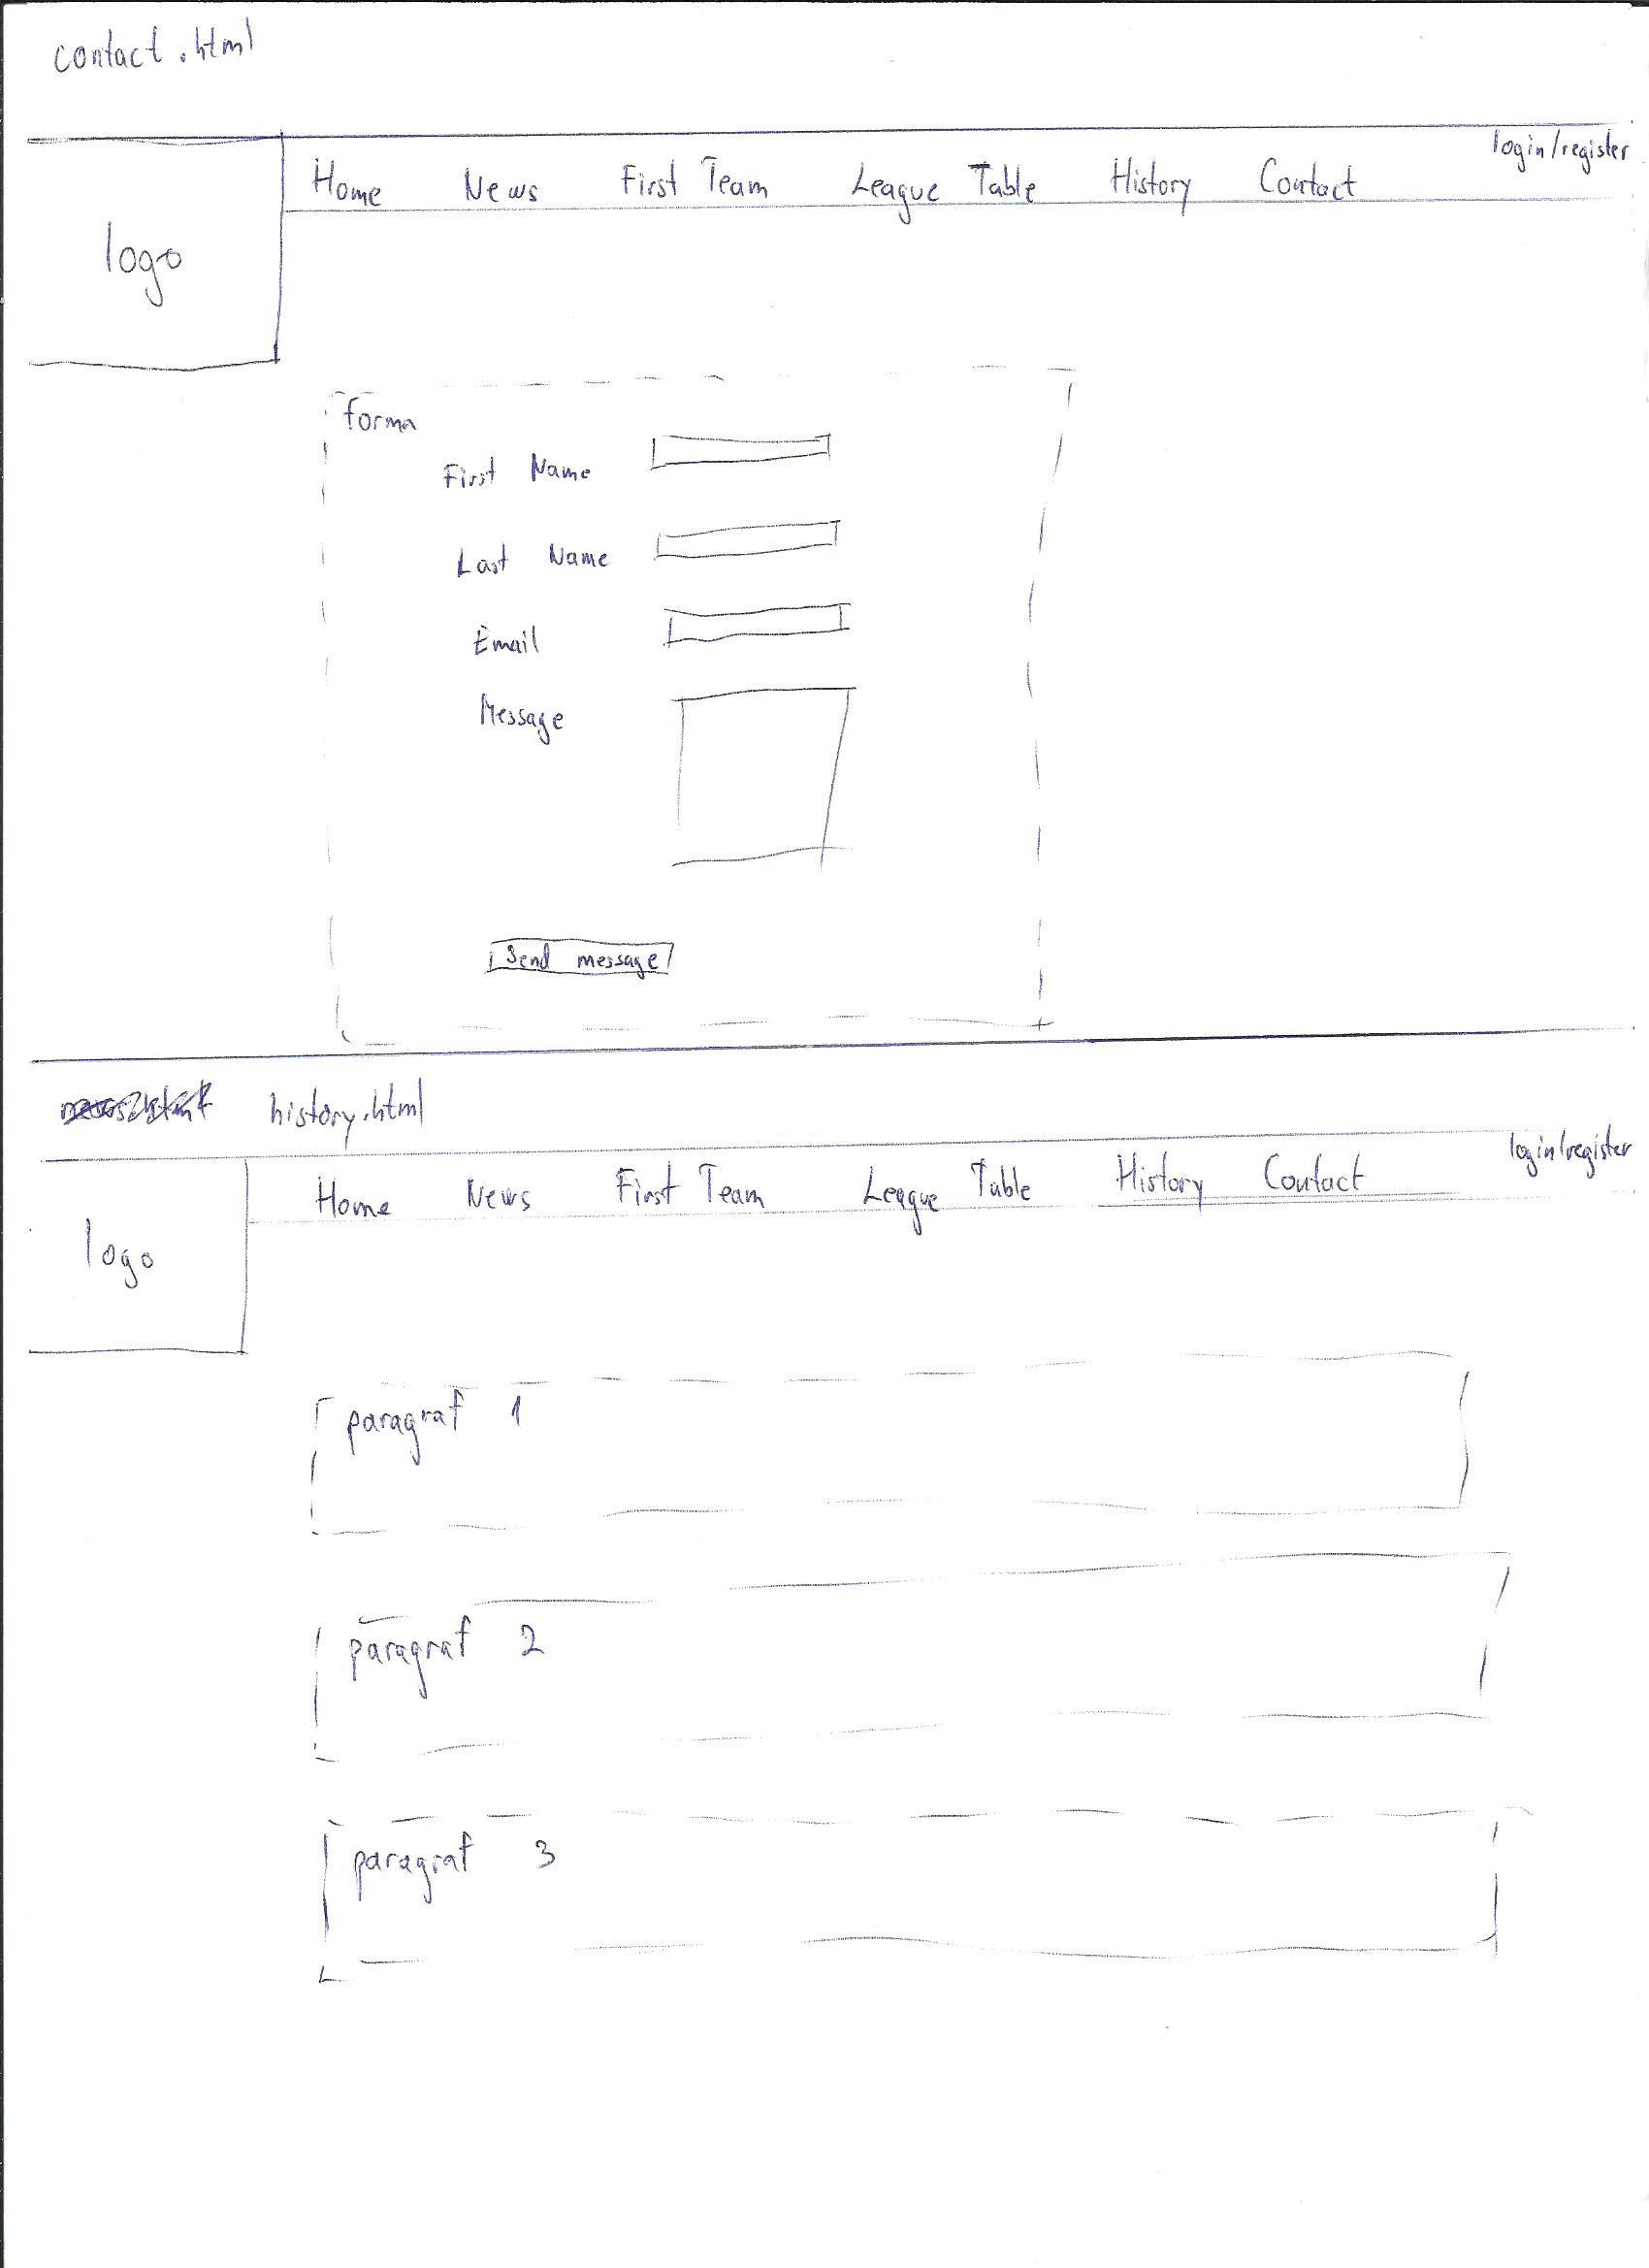 contact.html
login/register
Home News First Team League Table History Contact
logo
forma
First Name
Last Name
Email
Message
Send message
history.html
login/register
Home News First Team League Table History Contact
logo
paragraf 1
paragraf 2
paragraf 3